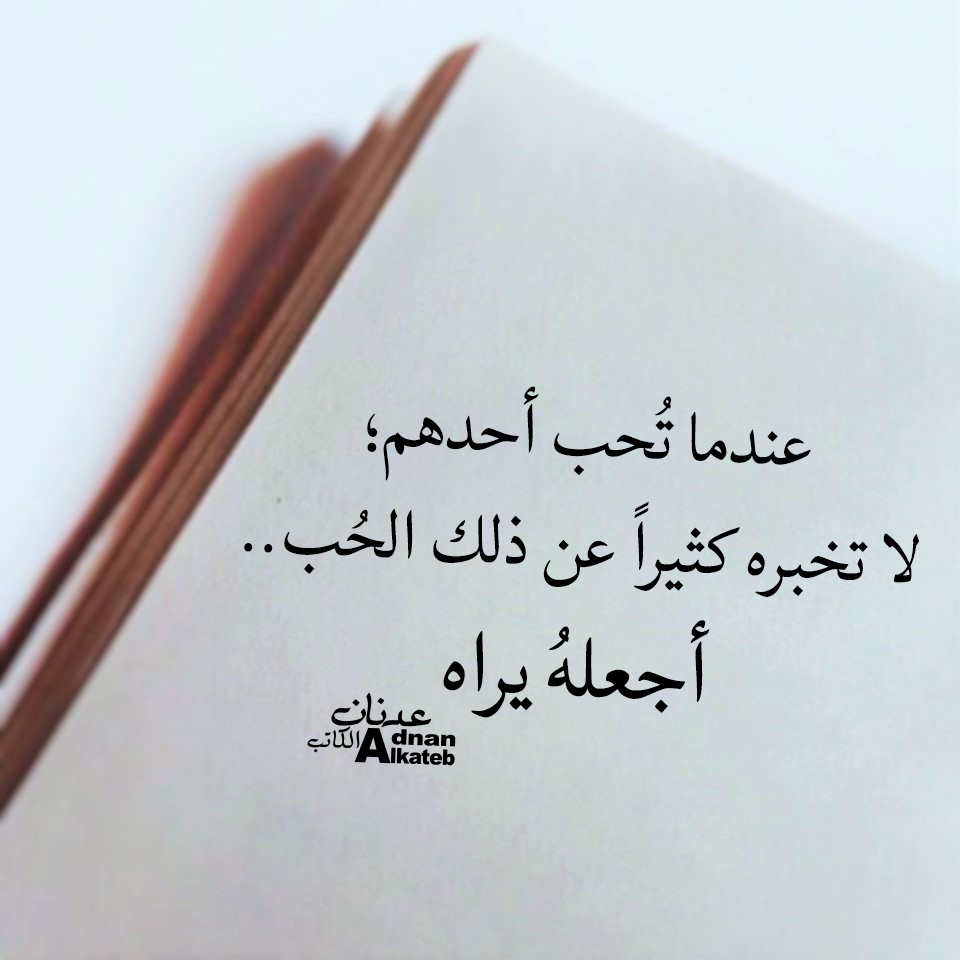 عندما تُحب أحدهم؛
لا تخبره كثيراً عن ذلك الحُب..
أجعلهُ يراه
عدنان
الكاتب
Adnan
Alkateb